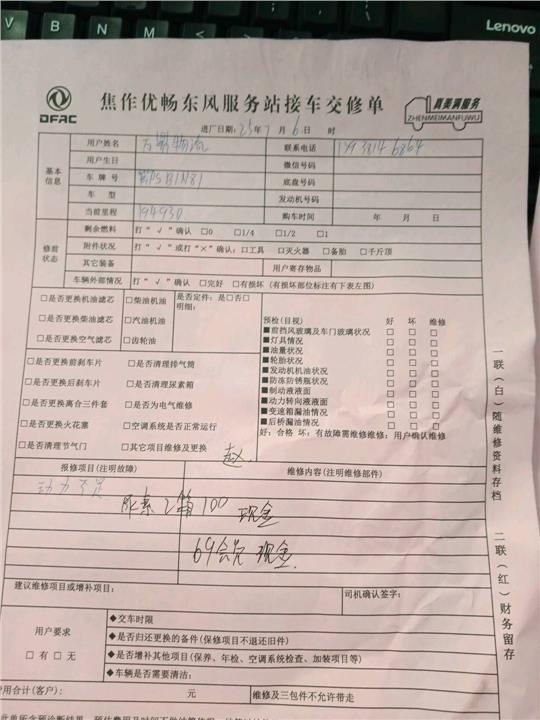 Lenovo
V
B
N
M
DFAC
焦作优畅东风服务站接车交修单
真美满服务
ZHENMEIMANFUWU
进厂日期: 23年 7 月 6 日 时
基本信息
用户姓名 万 物流 联系电话
用户生日 微信号码
车牌号 底盘号码
车型 发动机号码
当前里程 194930 购车时间 年 月 日
修前状态
剩余燃料 打“√”确认 □0 □1/4 □1/2 □1
附件状况 打“√”或打“×”确认: □工具 □灭火器 □备胎 □千斤顶
其它装备 用户寄存物品
车辆外部情况 打“√”确认 □完好 □有损坏 (有损坏部位标注有下表左图)
□是否更换机油滤芯 □柴油机油 是否定件: 是□否□
明细:
□是否更换柴油滤芯 □汽油机油
□是否更换空气滤芯 □齿轮油
预检(目视) 好 坏 维修
■前挡风玻璃及车门玻璃状况 □ □ □
■灯具情况 □ □ □
■油量状况 □ □ □
■轮胎状况 □ □ □
■发动机机油状况 □ □ □
■防冻防锈瓶状况 □ □ □
■制动液液面 □ □ □
■动力转向液液面 □ □ □
■变速箱漏油情况 □ □ □
■后桥漏油情况 □ □ □
好: 合格 坏: 有故障需维修维修: 用户确认维修
□是否更换前刹车片 □是否清理排气筒
□是否更换后刹车片 □是否清理尿素箱
□是否更换离合三件套 □是否为电气维修
□是否更换火花塞 □空调系统是否正常运行
□是否清理节气门 □其它项目维修及更换
赵
报修项目(注明故障) 维修内容(注明维修部件)
动力不足
尿素2箱100 现金
69会员 现金.
建议维修项目或增补项目:
司机确认签字:
用户要求
□有 □无
◆交车时限
◆是否归还更换的备件(保修项目不退还旧件)
◆是否增补其他项目(保养、年检、空调系统检查、加装项目等)
◆车辆是否需要清洁:
费用合计(客户): 元 维修及三包件不允许带走
一联(白)随维修资料存档
二联(红)财务留存